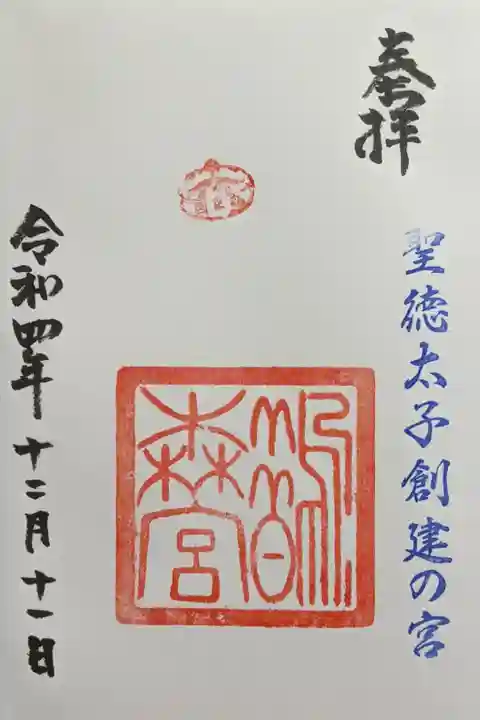 奉拝
聖徳太子創建の宮
令和四年十二月十一日